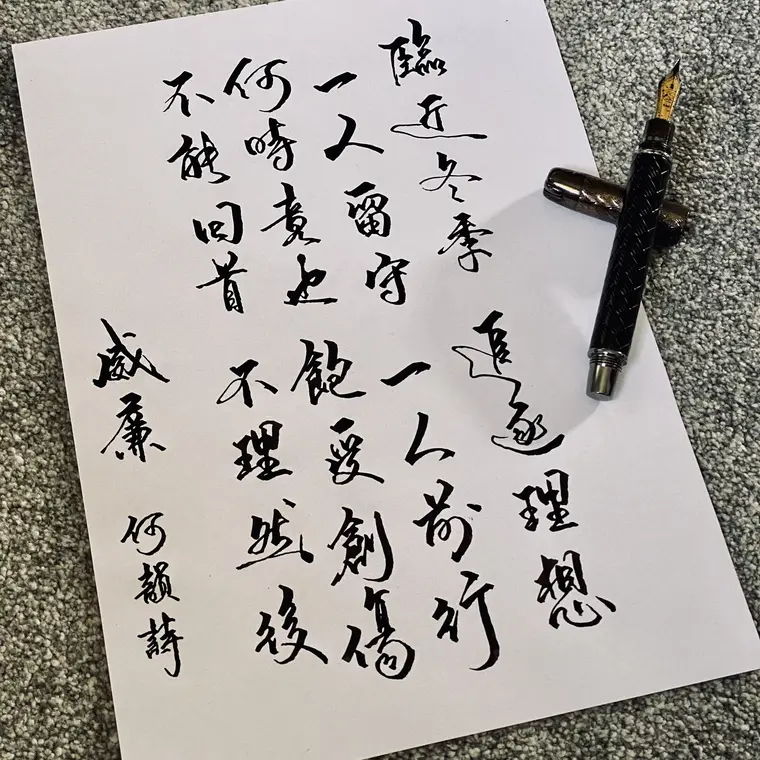 臨近冬季
一人留守
何時竟也
不能回首
追逐理想
一人前行
飽受創傷
不理然後
威廉 何韻詩